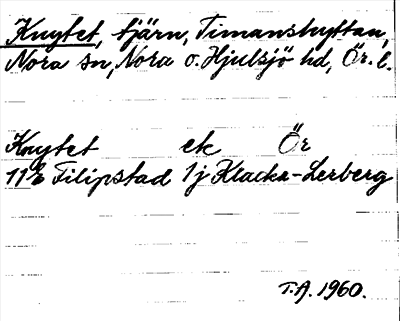 Knytet, tjärn, Timanshyttan,
Nora sn, Nora o. Hjulsjö hd, Ör. l.
Knytet ek Ör
11 Filipstad 1j Klacka-Lerberg
T.A. 1960.